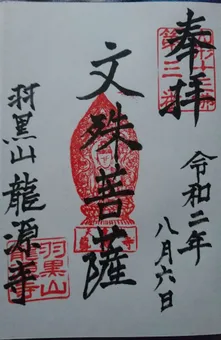 奉拝
令和二年
八月六日
文殊菩薩
羽黒山 龍源寺
羽黒山
龍源寺